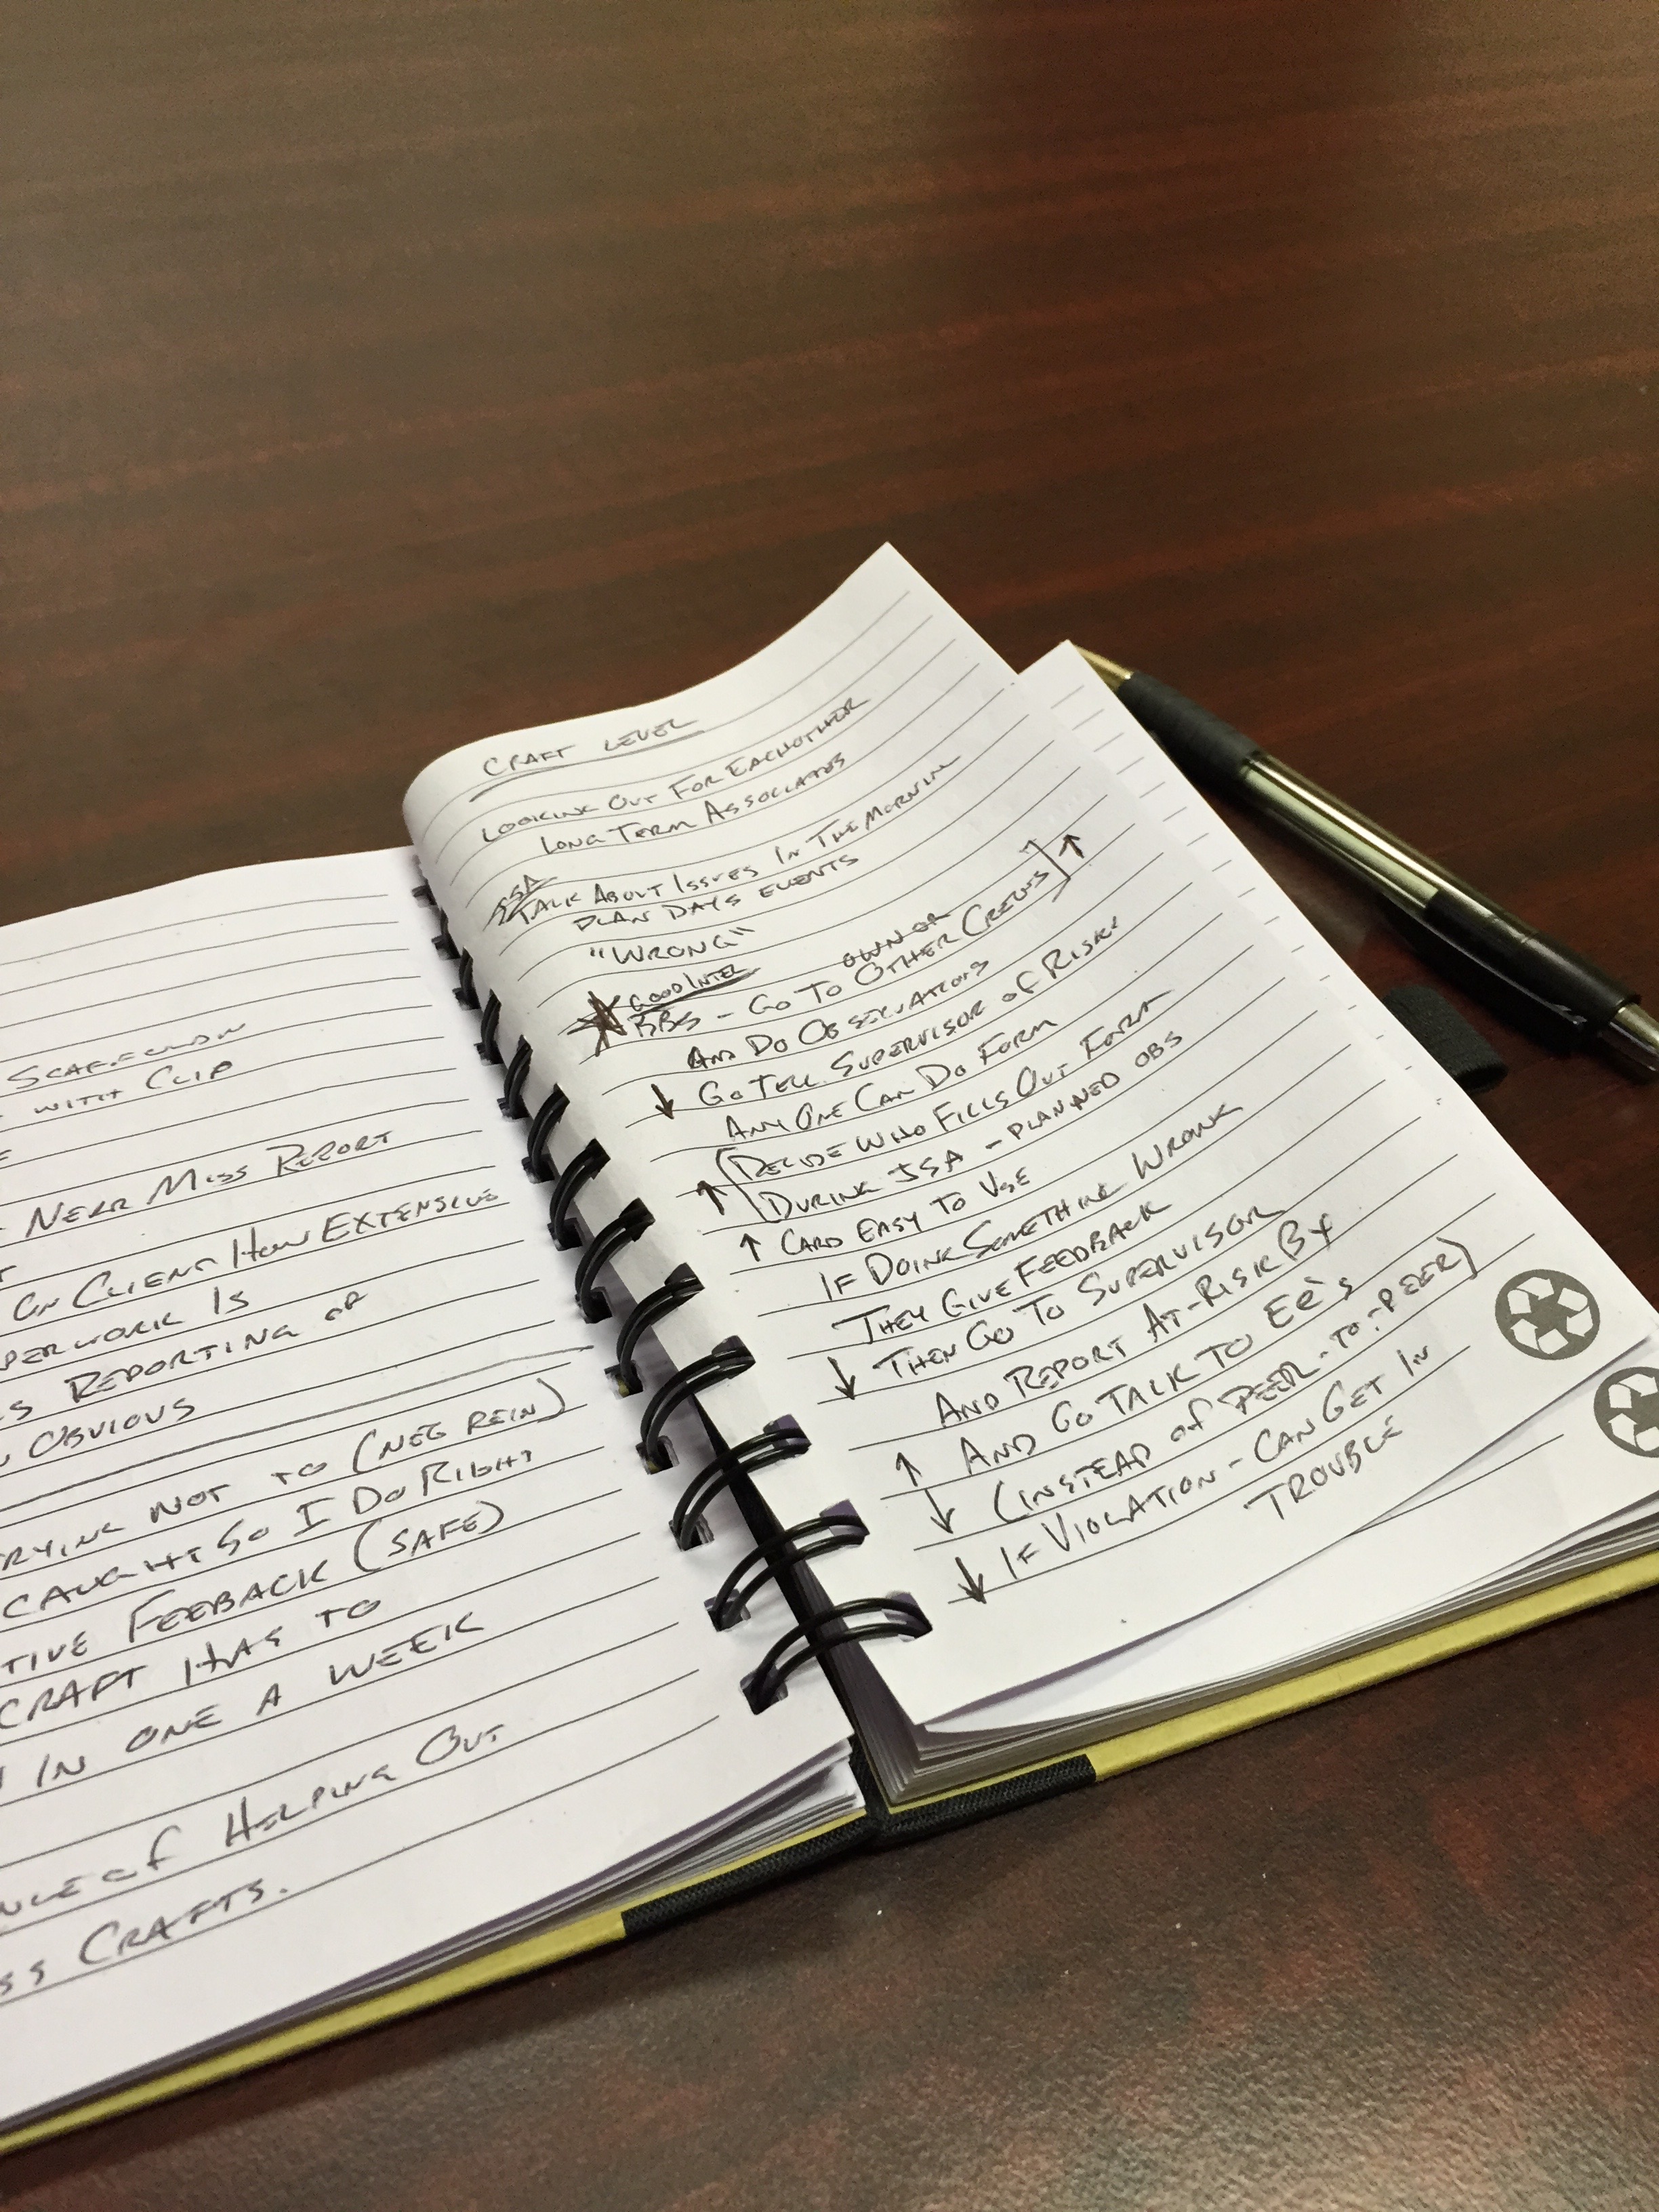 SCAFFOLDIN
WITH CLIP
NERR MISS REPORT
ON CLIENT HOW EXTENSIVE
PERWORK IS
S REPORTING OF
N OBVIOUS
RYING NOT TO (NEG REIN)
CAUGHT SO I DO RIGHT
TIVE FEEBACK (SAFE)
CRAFT HAS TO
IN ONE A WEEK
OF HELPING OUT
SS CRAFTS.
CRAFT LEVEL
LOOKING OUT FOR EACHOTHER
LONG TERM ASSOCIATES
TALK ABOUT ISSUES IN THE MORNIN
PLAN DAYS EVENTS
"WRONG"
GOOD INTER OWN OR
BBS - GO TO OTHER CREWS ↑
AND DO OBSERVATIONS
↓ GO TELL SUPERVISOR OF RISK
ANY ONE CAN DO FORM
↑ (DECIDE WHO FILLS OUT FORM
DURING JSA - PLANNED OBS
↑ CARD EASY TO USE
IF DOING SOMETHING WRONG
THEY GIVE FEEDBACK
↓ THEN GO TO SUPERVISOR
AND REPORT AT-RISK BY
↑ AND GO TALK TO EE'S
↓ (INSTEAD OF PEER-TO-PEER)
↓ IF VIOLATION - CAN GET IN
TROUBLE